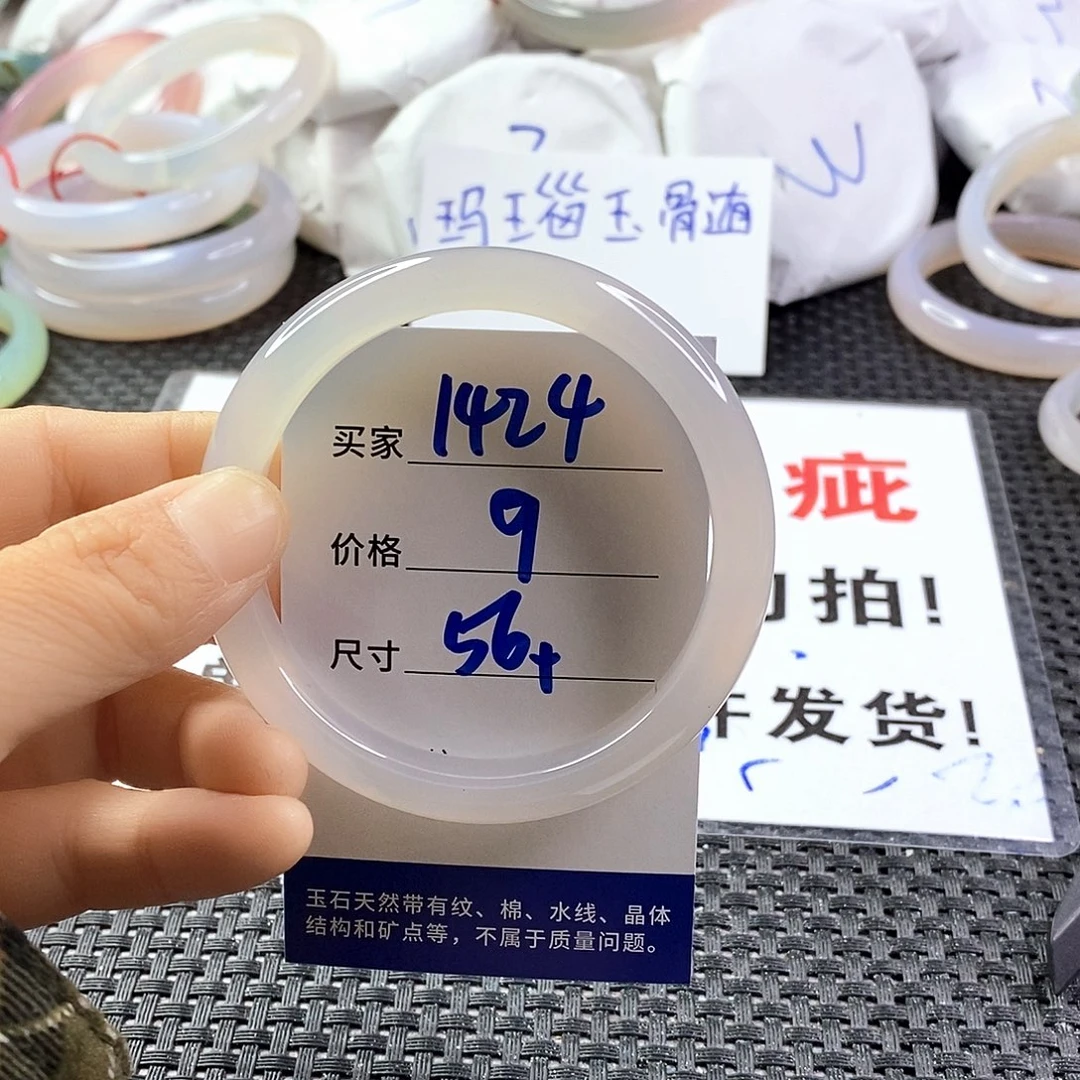 玛瑙玉骨随
买家 1424
价格 9
尺寸 56+
疵
拍!
发货!
玉石天然带有纹、棉、水线、晶体
结构和矿点等，不属于质量问题。